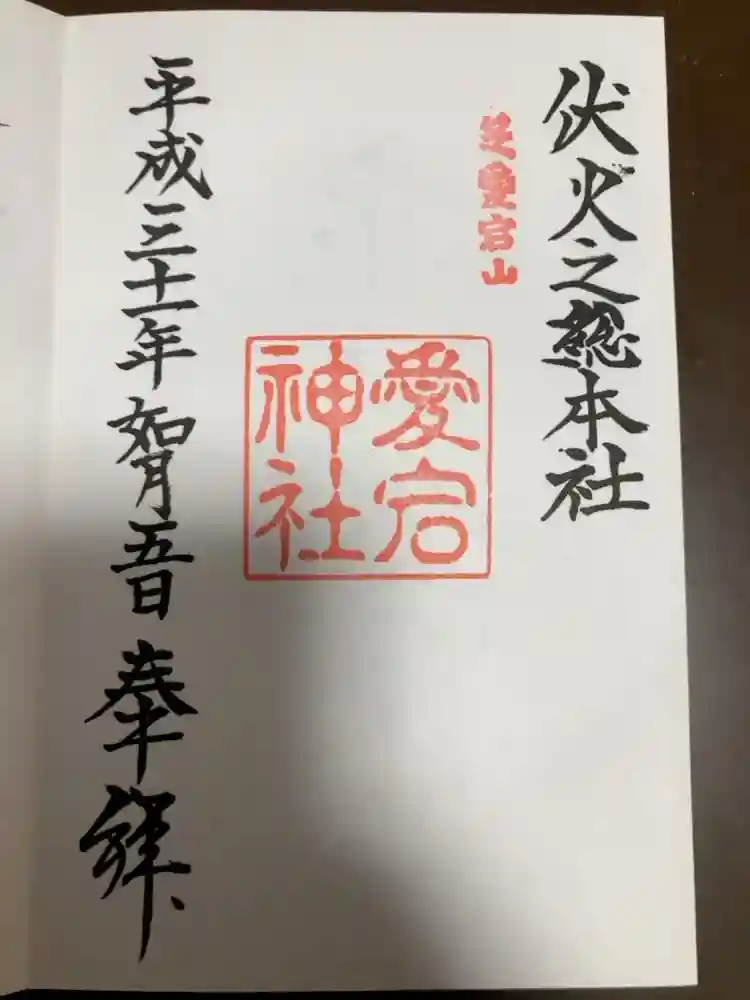 伏火之総本社
芝愛宕山
愛宕
神社
平成三十一年如月五日奉拝